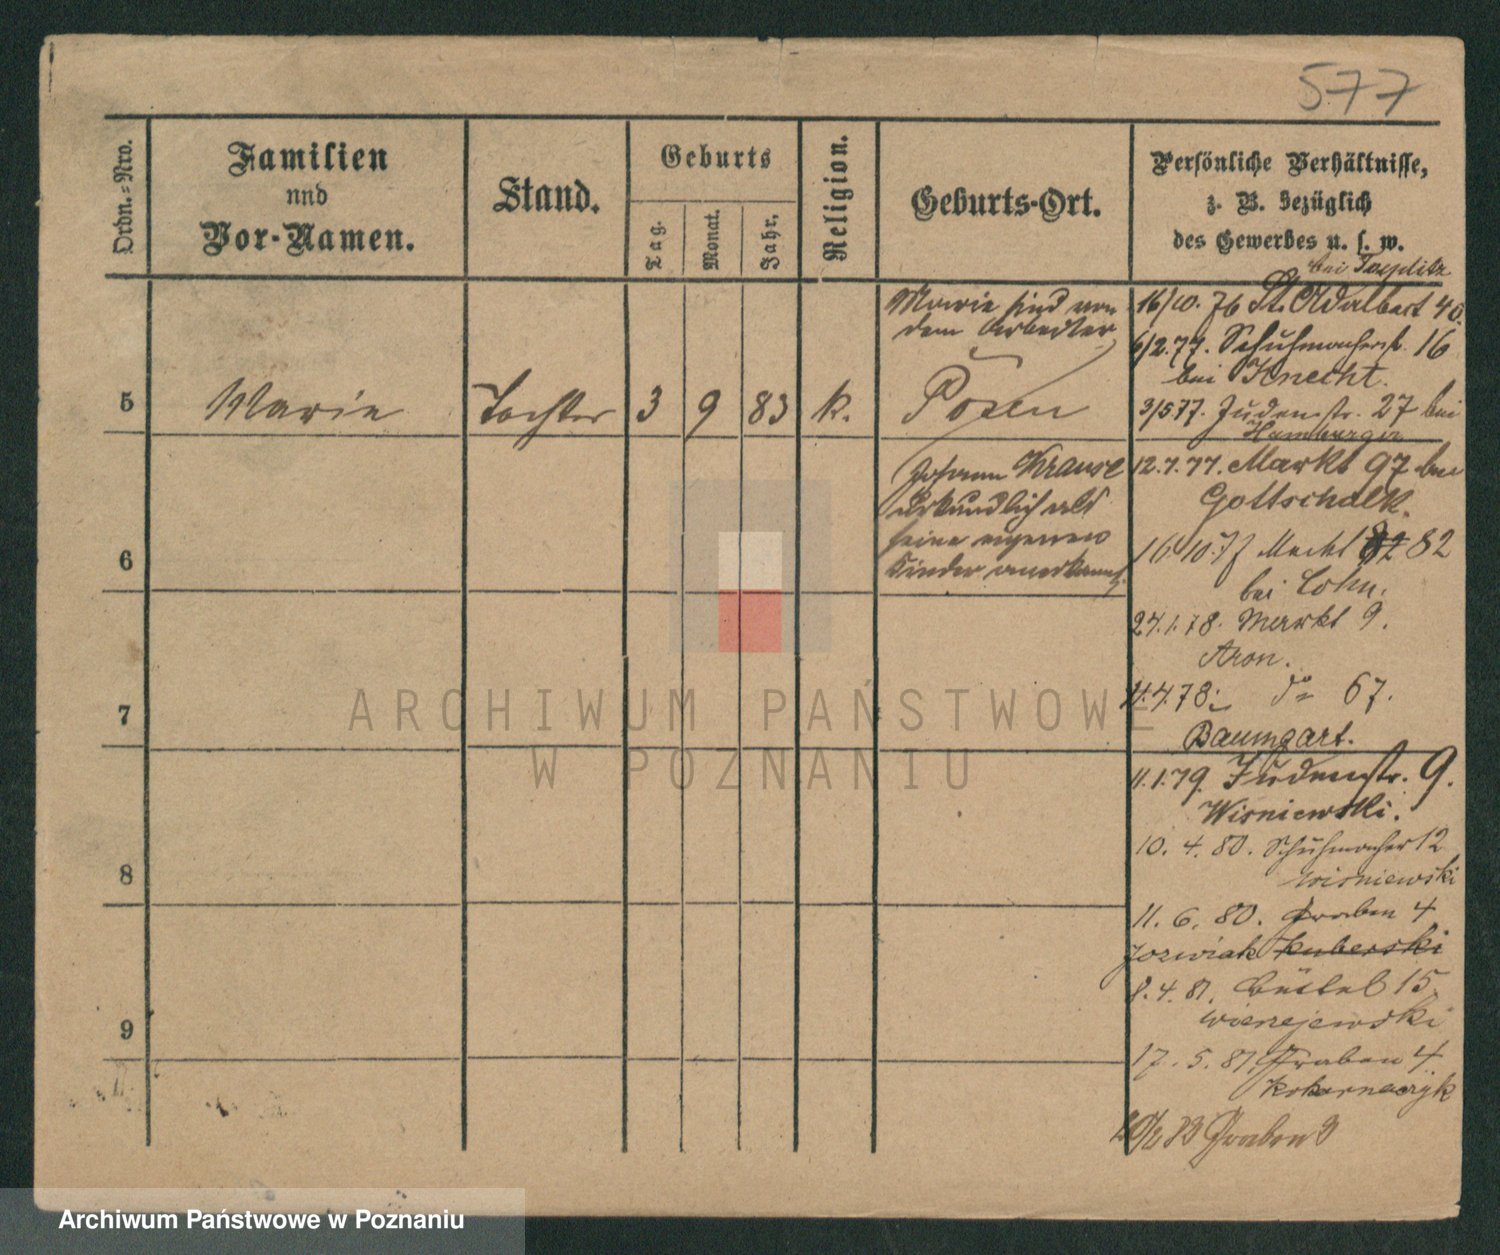 577
Ordn.=Nro.
Familien
und
Vor-Namen.
Stand.
Geburts
Tag.
Monat.
Jahr.
Religion.
Geburts-Ort.
Persönliche Verhältnisse,
z. B. bezüglich
des Gewerbes u. s. w.
5
Marie
Tochter
3
9
83
k.
Marie sind von
dem Arbeiter
Posen
Johann Krause
urkundlich als
seine eigenen
Kinder anerkannt
6
7
8
9
bei Toeplitz
16/10. 76 St. Adalbert 40.
6/2.77. Schuhmacherstr. 16
bei Knecht.
3/5.77. Judenstr. 27 bei
Hamburger
12.7.77. Markt 97 bei
Gottschalk.
16.10.77 Markt 82
bei Cohn.
24.1.78. Markt 9.
Aron.
11.4.78. do 67.
Baumgart.
11.1.79. Judenstr. 9.
Wisniewski.
10. 4. 80. Schuhmacher 12
Wisniewski
11. 6. 80. Graben 4
Jozwiak Kuberski
8. 4. 81. Büttel 15.
Wierzejewski
17. 5. 81. Graben 4.
83 Graben 9
ARCHIWUM PAŃSTWOWE
W POZNANIU
Archiwum Państwowe w Poznaniu